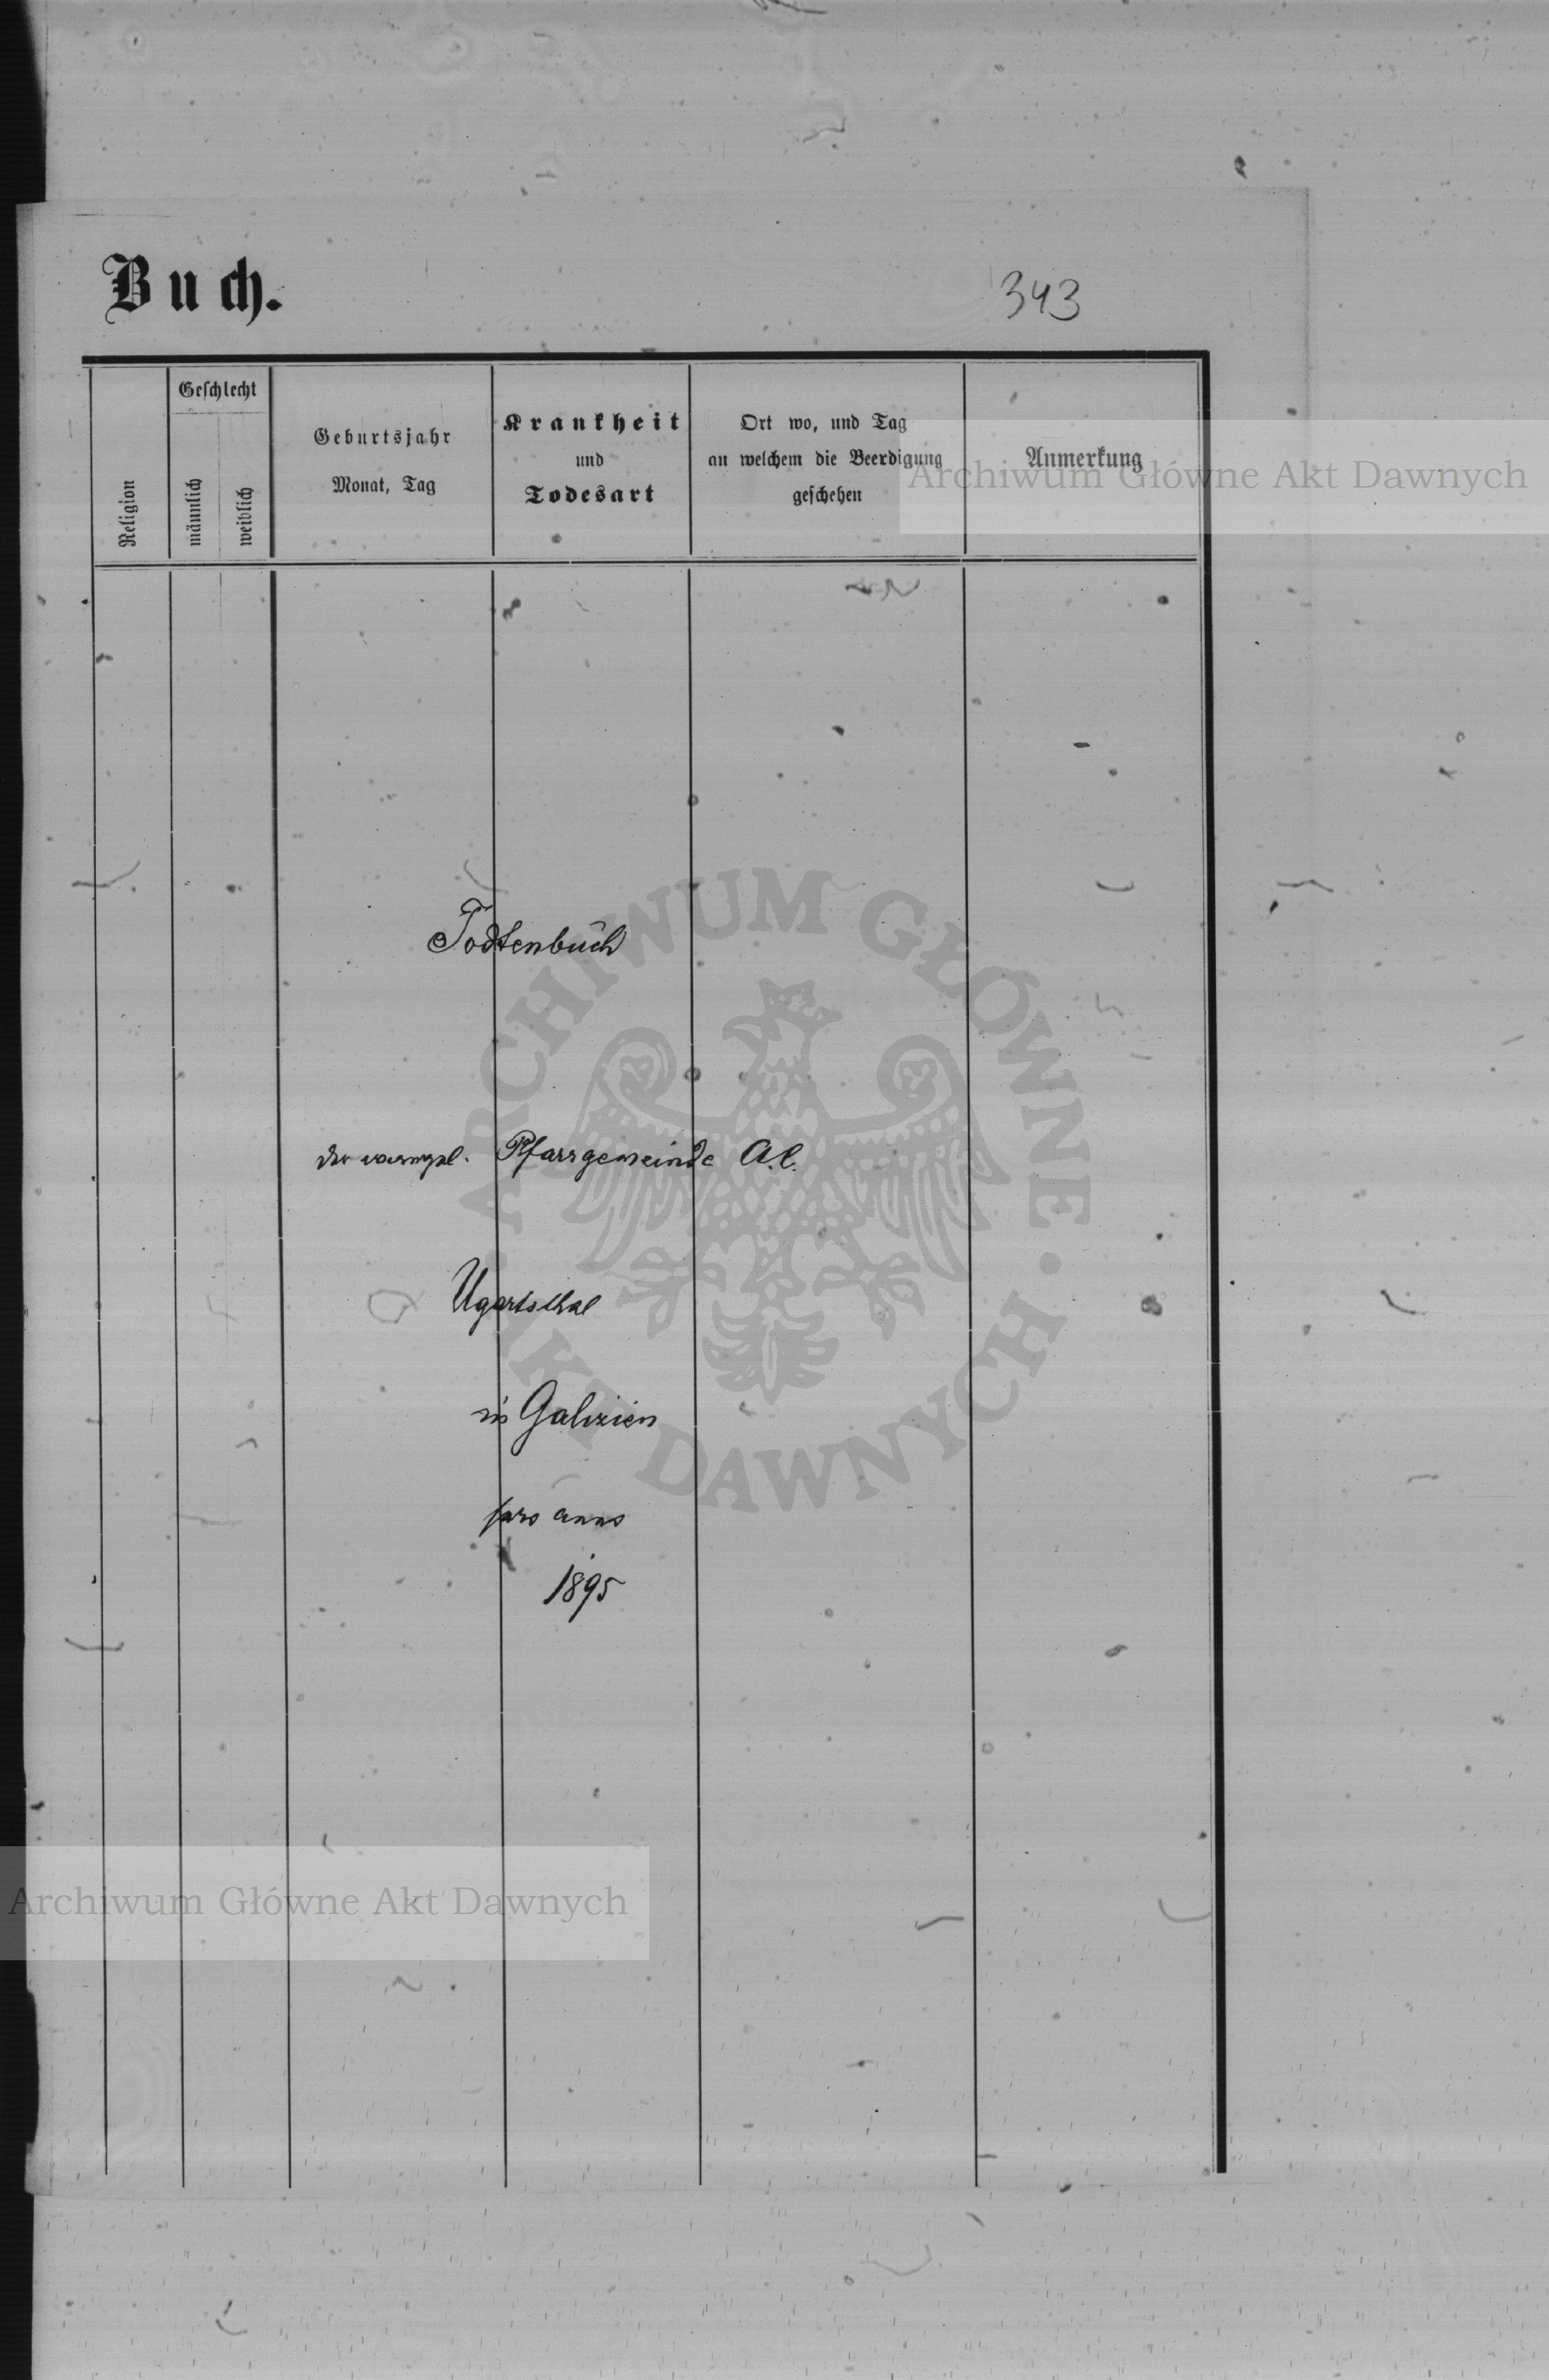 Buch.
343
Religion
Geschlecht
männlich
weiblich
Geburtsjahr
Monat, Tag
Krankheit
und
Todesart
Ort wo, und Tag
an welchem die Beerdigung
geschehen
Anmerkung
Archiwum Główne Akt Dawnych
Todtenbuch
der evangel. Pfarrgemeinde A.C.
Ugartsthal
in Galizien
pro anno
1895
ARCHIWUM GŁÓWNE • AKT DAWNYCH •
Archiwum Główne Akt Dawnych